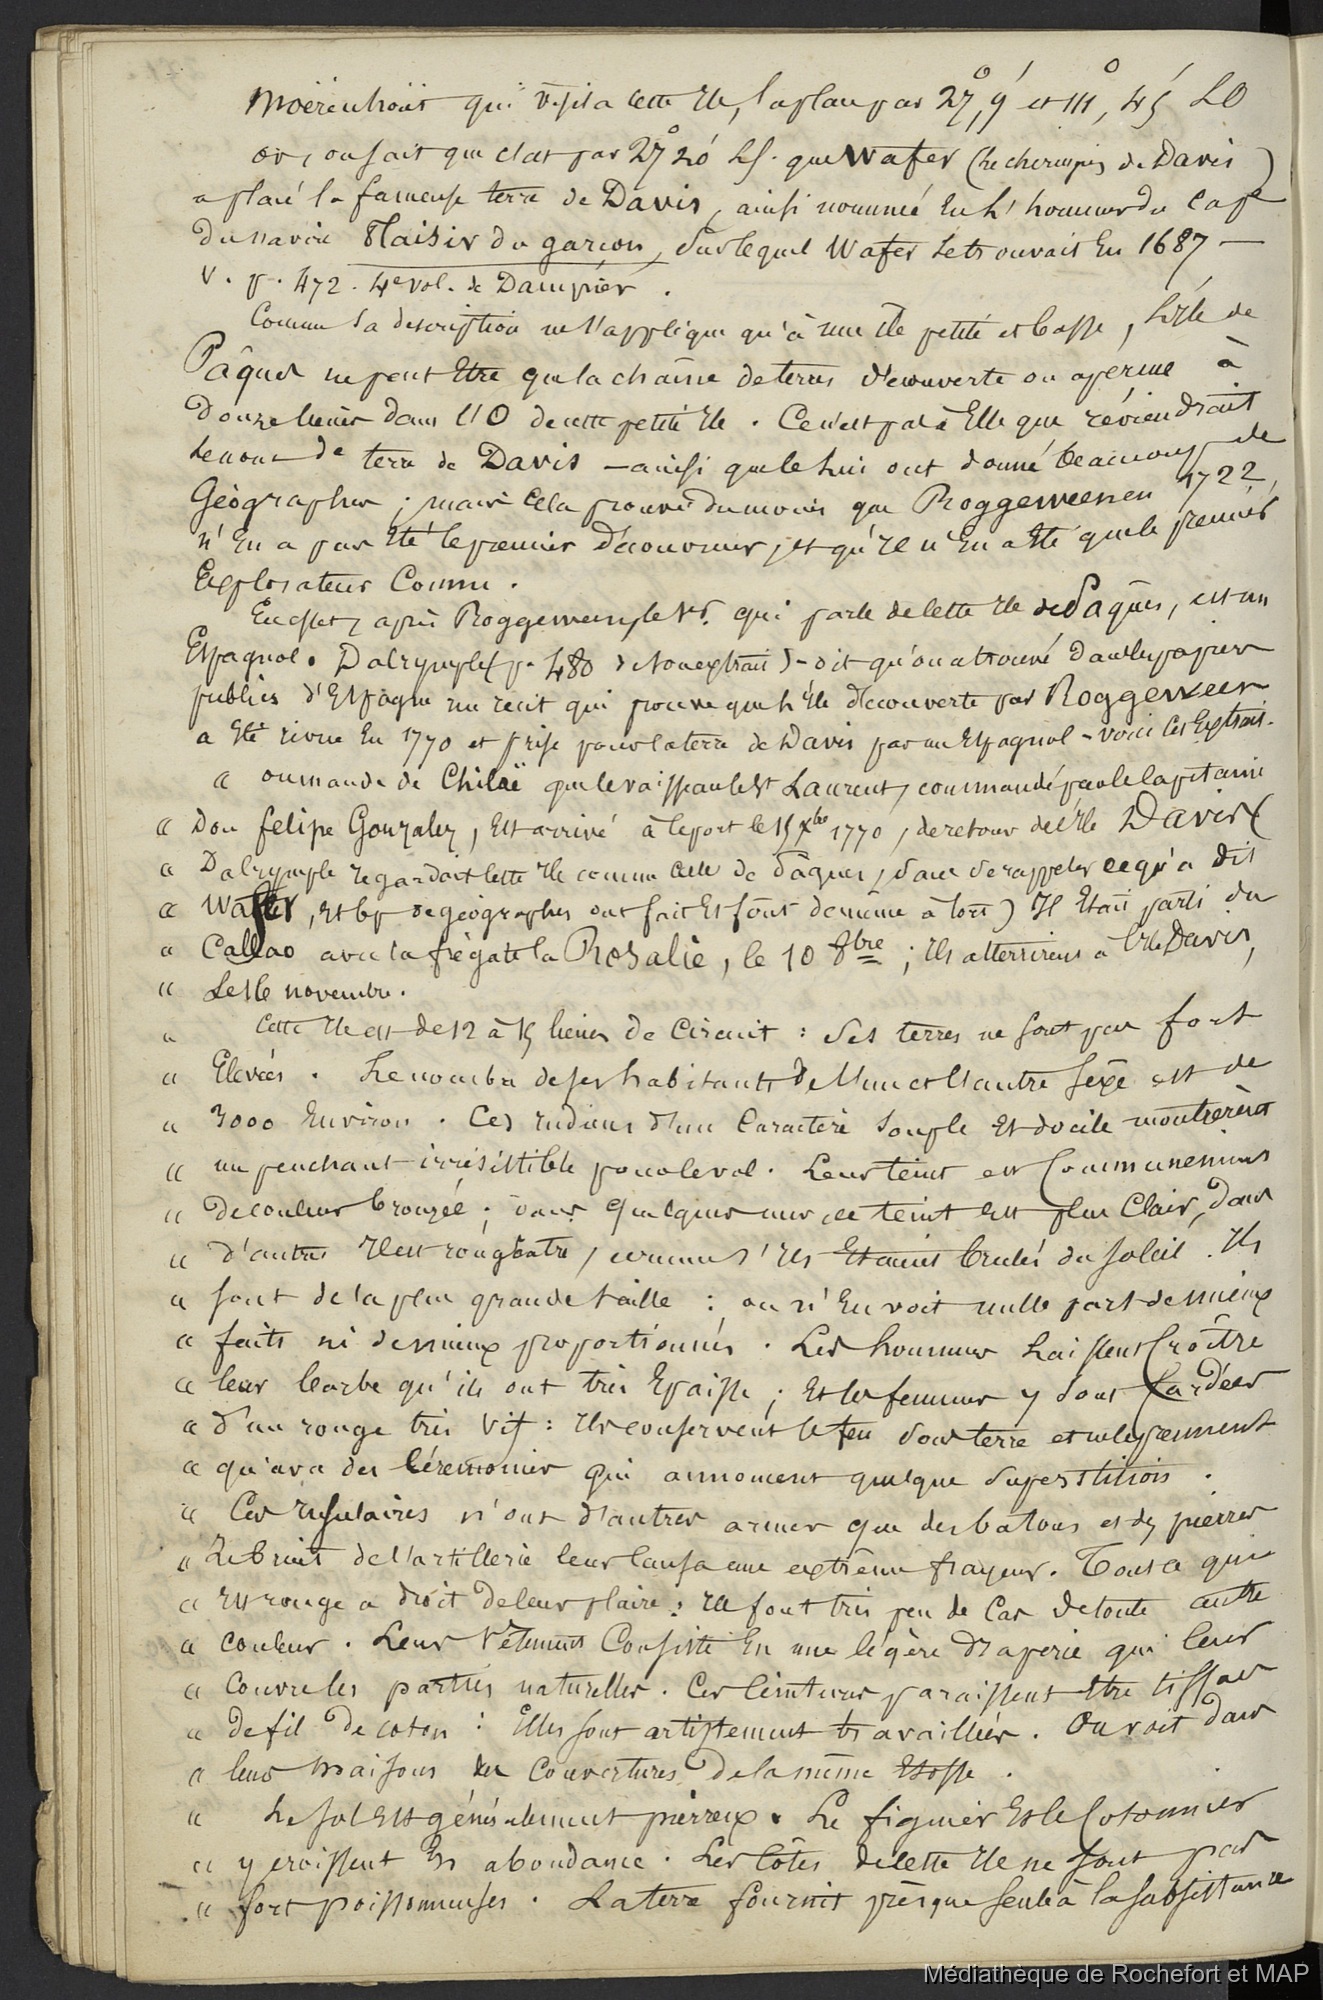 Moërenhoüt qui visita cette Ile, la place par 27°, 9' et 111°, 45' LO
or, on sait que c'est par 27° 20' LS. que Wafer (le chirurgien de Davis)
a placé la fameuse terre de Davis, ainsi nommée En l'honneur du Cape
du navire Plaisir du garçon, sur lequel Wafer se trouvait En 1687 —
V. p. 472. 4e vol. de Dampier.
Comme sa description ne s'applique qu'à une île petite et basse, l'Ile de
Pâques ne peut Etre que la chaîne de terres découverte ou aperçue à
Douze lieues dans l'O de cette petite Ile. Ce n'est pas à Elle que reviendrait
le nom de terre de Davis — ainsi que le lui ont donné beaucoup de
Géographes ; mais cela prouve du moins que Roggeween en 1722,
n'En a pas Eté le premier Découvreur, et qu'Il n'En a Eté que le premier
Explorateur Connu.
En effet, après Roggeween, le 1er. qui parle de cette Ile de Pâques, est un
Espagnol. Dalrymple (p. 480 de son extrait) - dit qu'on a trouvé dans les papiers
publics d'Espagne un récit qui prouve que l'Ile découverte par Roggeween
a Eté revue En 1770 et prise pour la terre de Davis par un Espagnol - voici ces Extraits.
« on mande de Chiloë que le vaisseau le St Laurent, commandé par le Capitaine
« Don felipe Gonzalez, Est arrivé à le port le 15 Xbre 1770, de retour de l'Ile Davis (
« Dalrymple regardait cette Ile comme celle de Pâques, sans se rappeler ce qu'a dit
« Wafer, et bp de géographes ont fait Et font de même à tort) Il Etait parti du
« Callao avec la frégate la Rosalie, le 10 8bre ; Ils atterrirent à l'Ile Davis,
« Le 16 novembre.
« Cette Ile est de 12 à 15 lieues de Circuit : Ses terres ne sont pas fort
« Elevées. Le nombre de ses habitants de l'un et l'autre Sexe est de
« 3000 Environ. Ces Indiens d'un Caractère Souple Et docile montrèrent
« un penchant irrésistible pour le vol. Leur teint est Communément
« De couleur bronzée ; dans quelques uns ce teint Est plus Clair, dans
« d'autres Il est rougeâtre, comme s'Ils Etaient brulés du soleil. Ils
« sont de la plus grande taille : on n'En voit nulle part de mieux
« faits ni de mieux proportionnés. Les hommes Laissent Croître
« leur barbe qu'ils ont très Epaisse ; Et les femmes y sont fardées
« d'un rouge très vif : Ils conservent le feu sous terre et ne le prennent
« qu'avec des Cérémonies qui annoncent quelque Superstition.
« Ces Insulaires n'ont d'autres armes que des batons et des pierres
« Le bruit de l'artillerie leur causa une extrême frayeur. Tout ce qui
« Est rouge a droit de leur plaire ; Ils font très peu de Cas de toute autre
« couleur. Leur Vêtement Consiste En une légère Draperie qui leur
« Couvre les parties naturelles. Ces Ceintures paraissent Etre tissues
« de fil de coton : Elles sont artistement travaillées. On voit dans
« leurs maisons des Couvertures de la même Etoffe.
« Le sol Est généralement pierreux. Le figuier Et le Cotonnier
« y croissent En abondance. Les Côtes de cette Ile ne sont pas
« fort poissonneuses. La terre fournit presque seule à la subsistance
Médiathèque de Rochefort et MAP